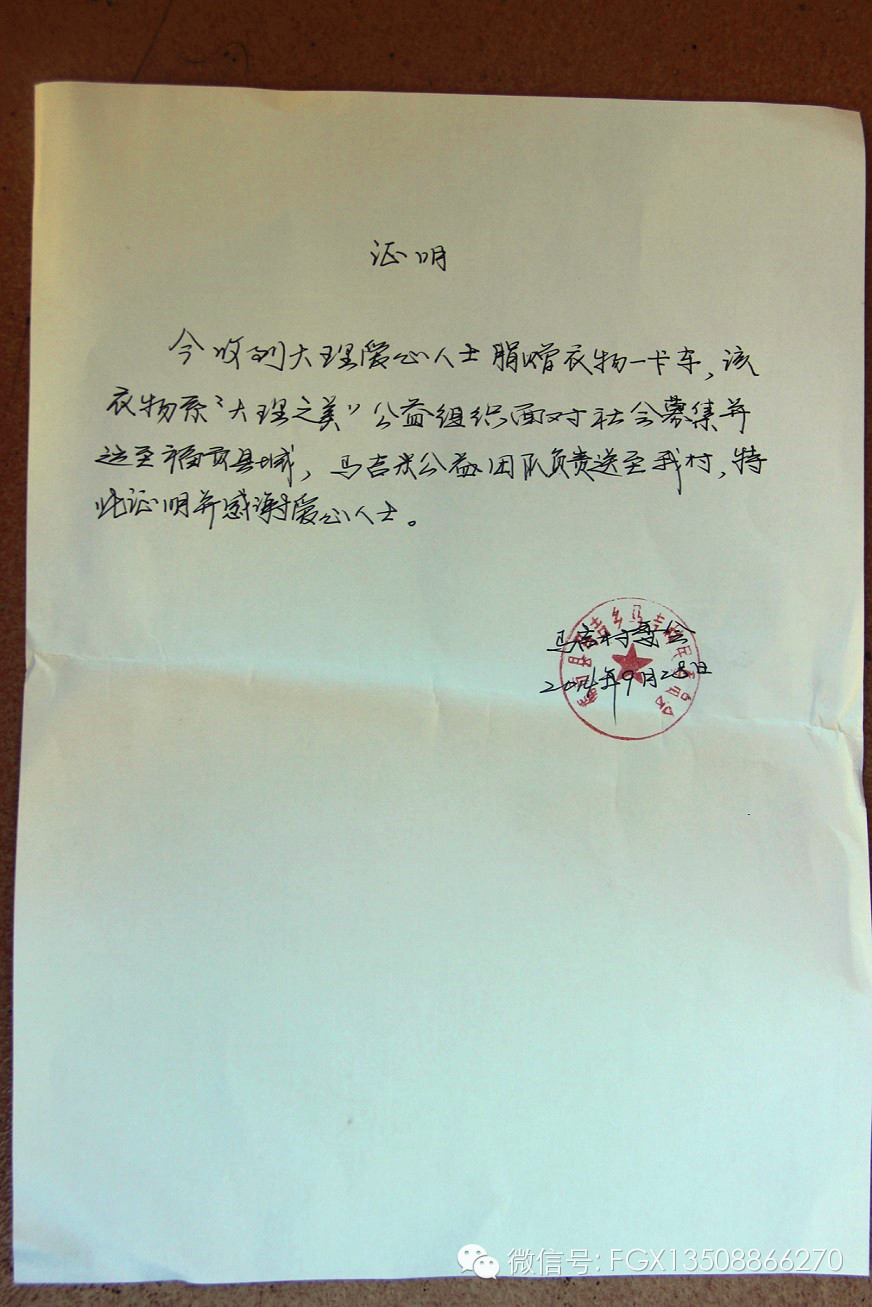 证明
今收到大理爱心人士捐赠衣物一卡车，该
衣物系“大理之美”公益组织面对社会募集并
送至福贡县城，马吉米公益团队负责送至我村，特
此证明并感谢爱心人士。
马吉村委会
2014年9月28日
微信号: FGX13508866270